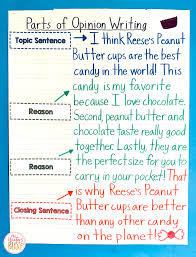 Parts of Opinion Writing
Topic Sentence
I think Reese's Peanut
Butter cups are the best
candy in the world! This
candy is my favorite
Reason
because I love chocolate.
Second, peanut butter and
chocolate taste really good
Reason
together. Lastly, they are
the perfect size for you to
carry in your pocket! That
is why Reese's Peanut
Closing Sentence
Butter cups are better
than any other candy
on the planet!